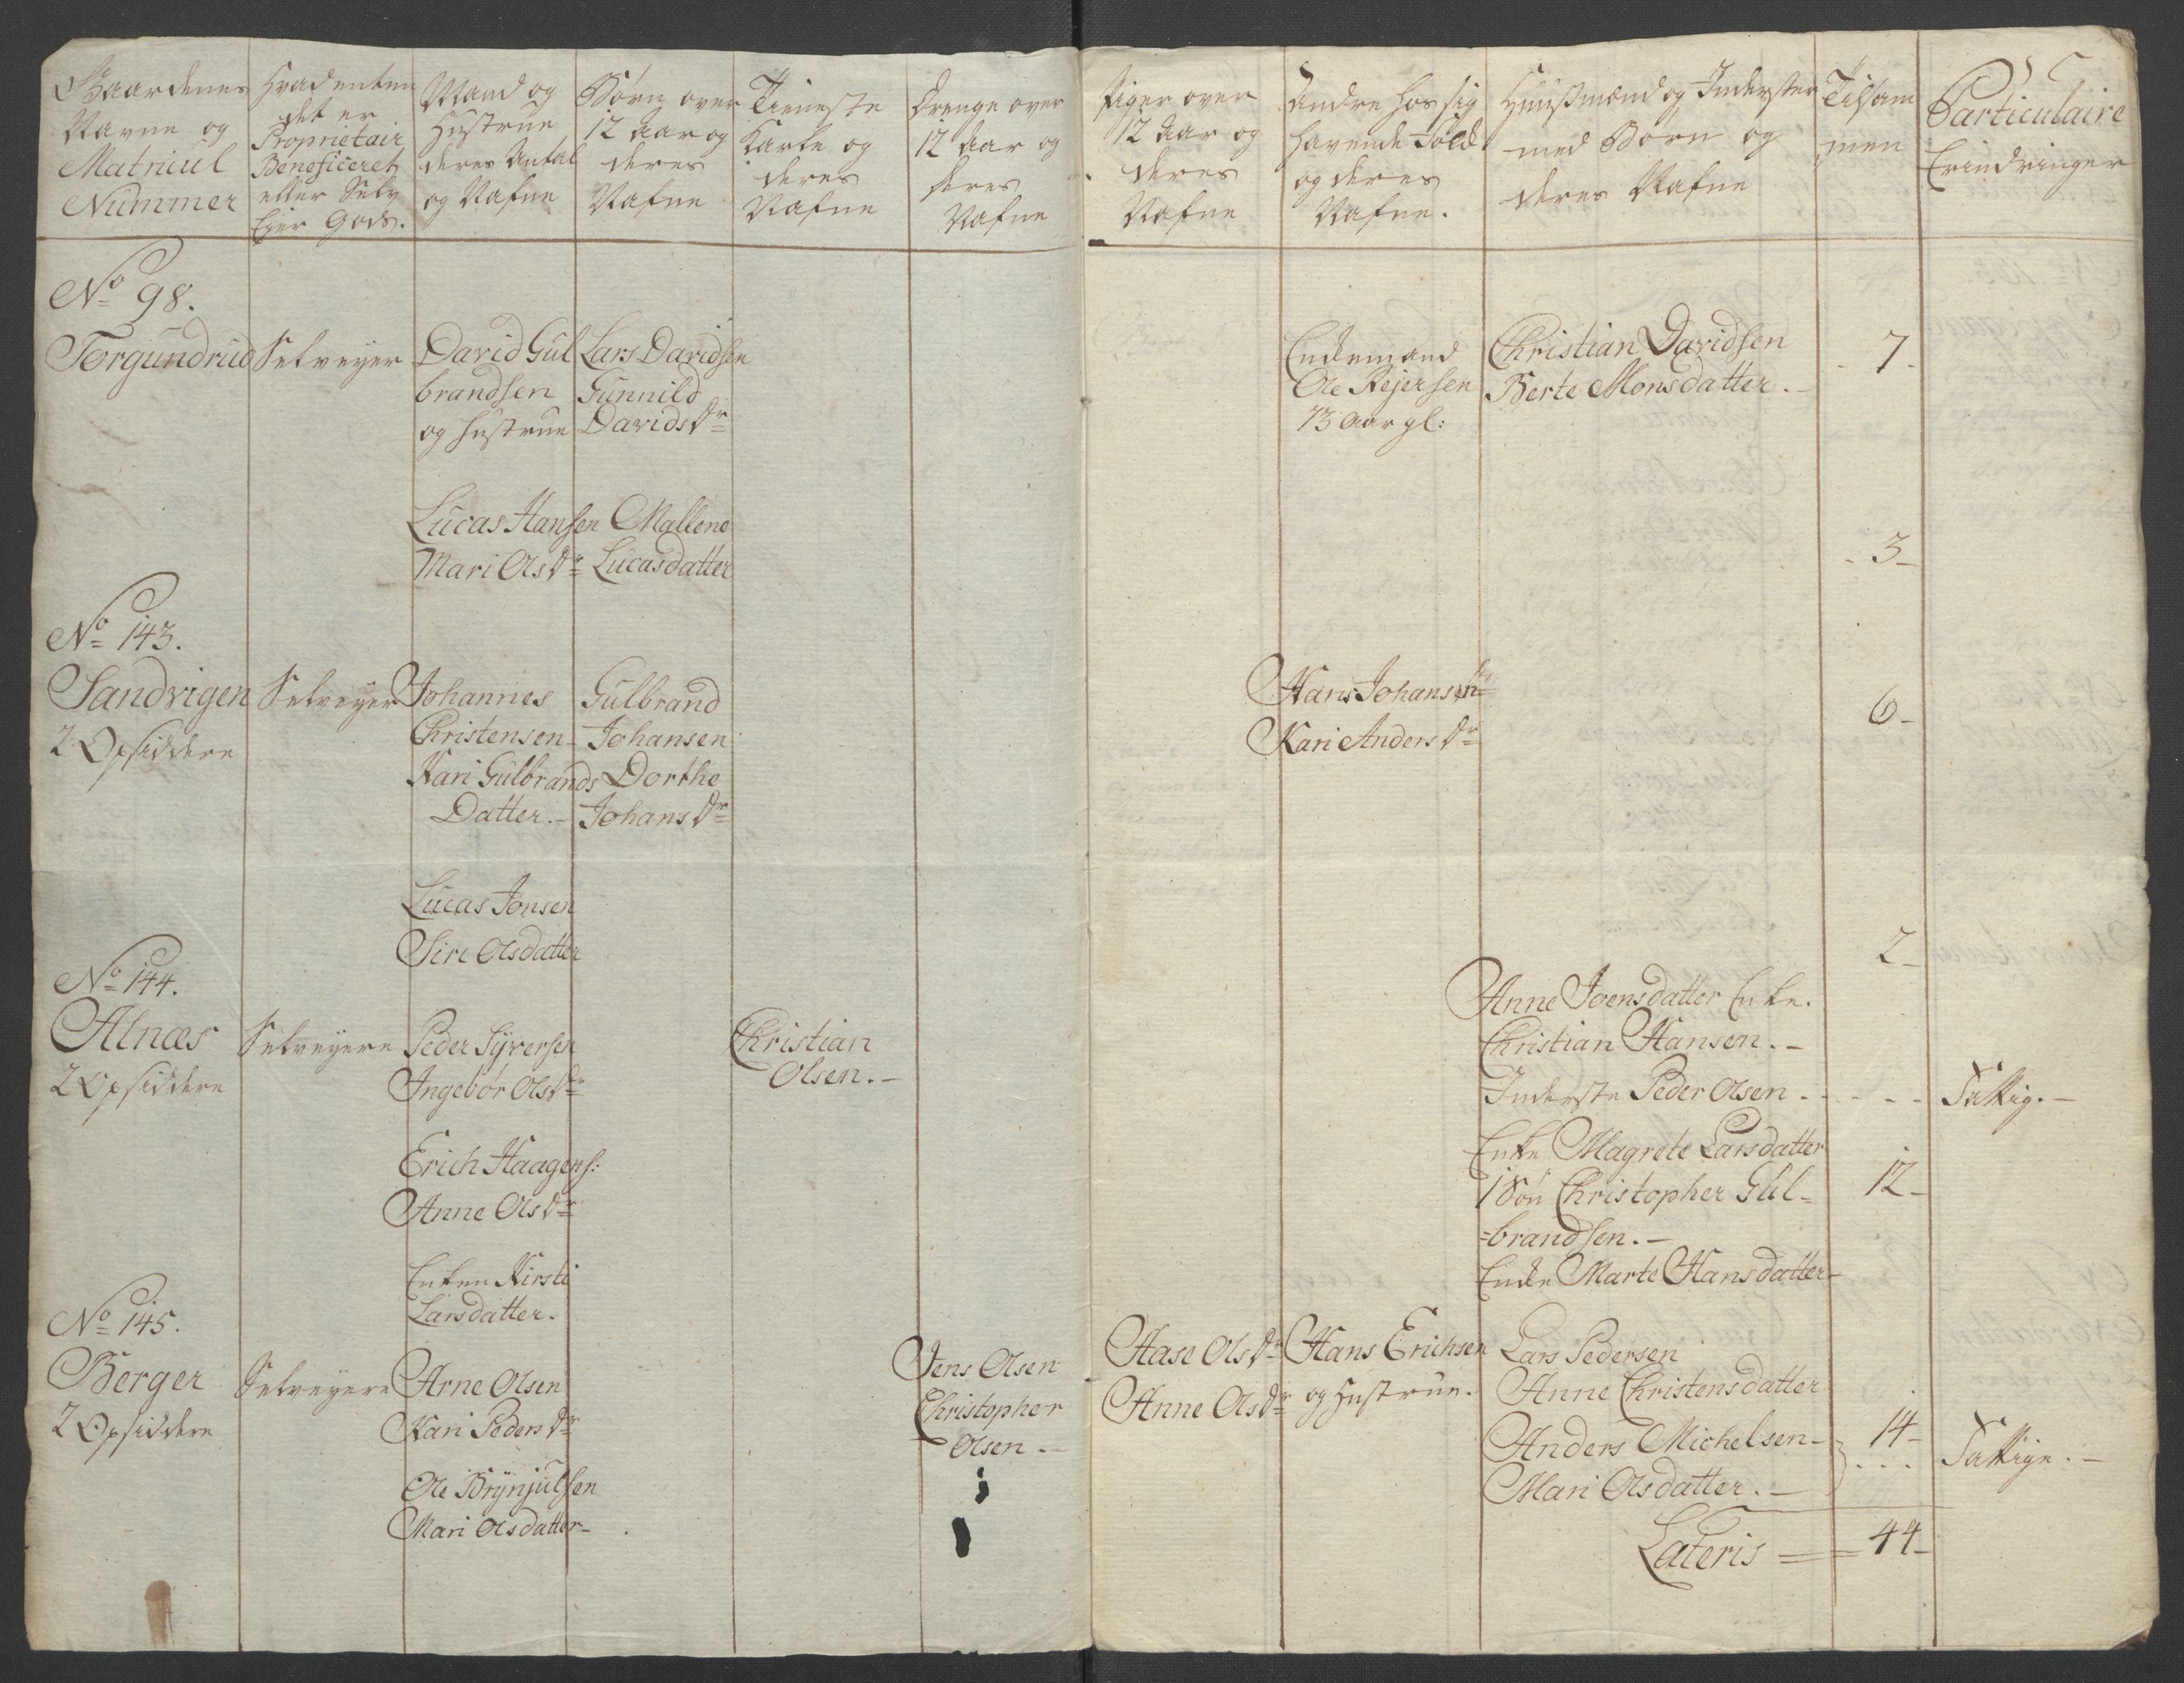 Gaardenes
Navne og
Matricul
Nummer
Hvadenten
det er
Proprietair
Beneficeret
eller Selv
Ejer Gods.
Mand og
Hustrue
deres Antal
og Nafne
Børn over
12 Aar og
deres
Nafne
Tieneste
Karle og
deres
Nafne
Drenge over
12 Aar og
deres
Nafne
Piger over
12 Aar og
deres
Nafne
Andre hos sig
havende Folk
og deres
Nafne.
Huusmænd og Inderster
med Børn og
deres Nafne
Tilsam
men
Particulaire
Erindringer
No 98.
Torgundrud
Selveyer
David Gul
brandsen
og Hustrue
Lars Davidsen
Gunnild
Davidsdr
Enkemand
Ole Rejersen
73 Aar gl:
Christian Davidsen
Berte Monsdatter.
7
Lucas Hansen
Mari Olsdr
Mallene
Lucasdatter
3
No 143.
Sandvigen
2 Opsiddere
Selveyer
Johannes
Christensen
Kari Gulbrands
Datter.
Gulbrand
Johansen
Dorthe
Johansdr
Hans Johansen
Kari Andersdr
6
Lucas Jonsen
Siri Olsdatter
2
No 144.
Alnæs
2 Opsiddere
Selveyere
Peder Syversen
Ingebor Olsdr
Christian
Olsen.
Anne Joensdatter Enke.
Christian Hansen.
Inderste Peder Olsen
Fattig.
Erich Haagens:
Anne Olsdr
Enke Magrete Larsdatter
1 Søn Christopher Gul-
-brandsen.
12
Enken Kirsti
Larsdatter.
Enke Marte Hansdatter
No 145.
Berger
2 Opsiddere
Selveyere
Arne Olsen
Kari Pedersdr
Jens Olsen
Christopher
Olsen.
Aase Olsdr
Anne Olsdr
Hans Erichsen
og Hustrue.
Lars Pedersen
Anne Christensdatter
Anders Michelsen
Mari Olsdatter.
14
Fattige.
Ole Brynjulsen
Mari Olsdatter
Lateris
44